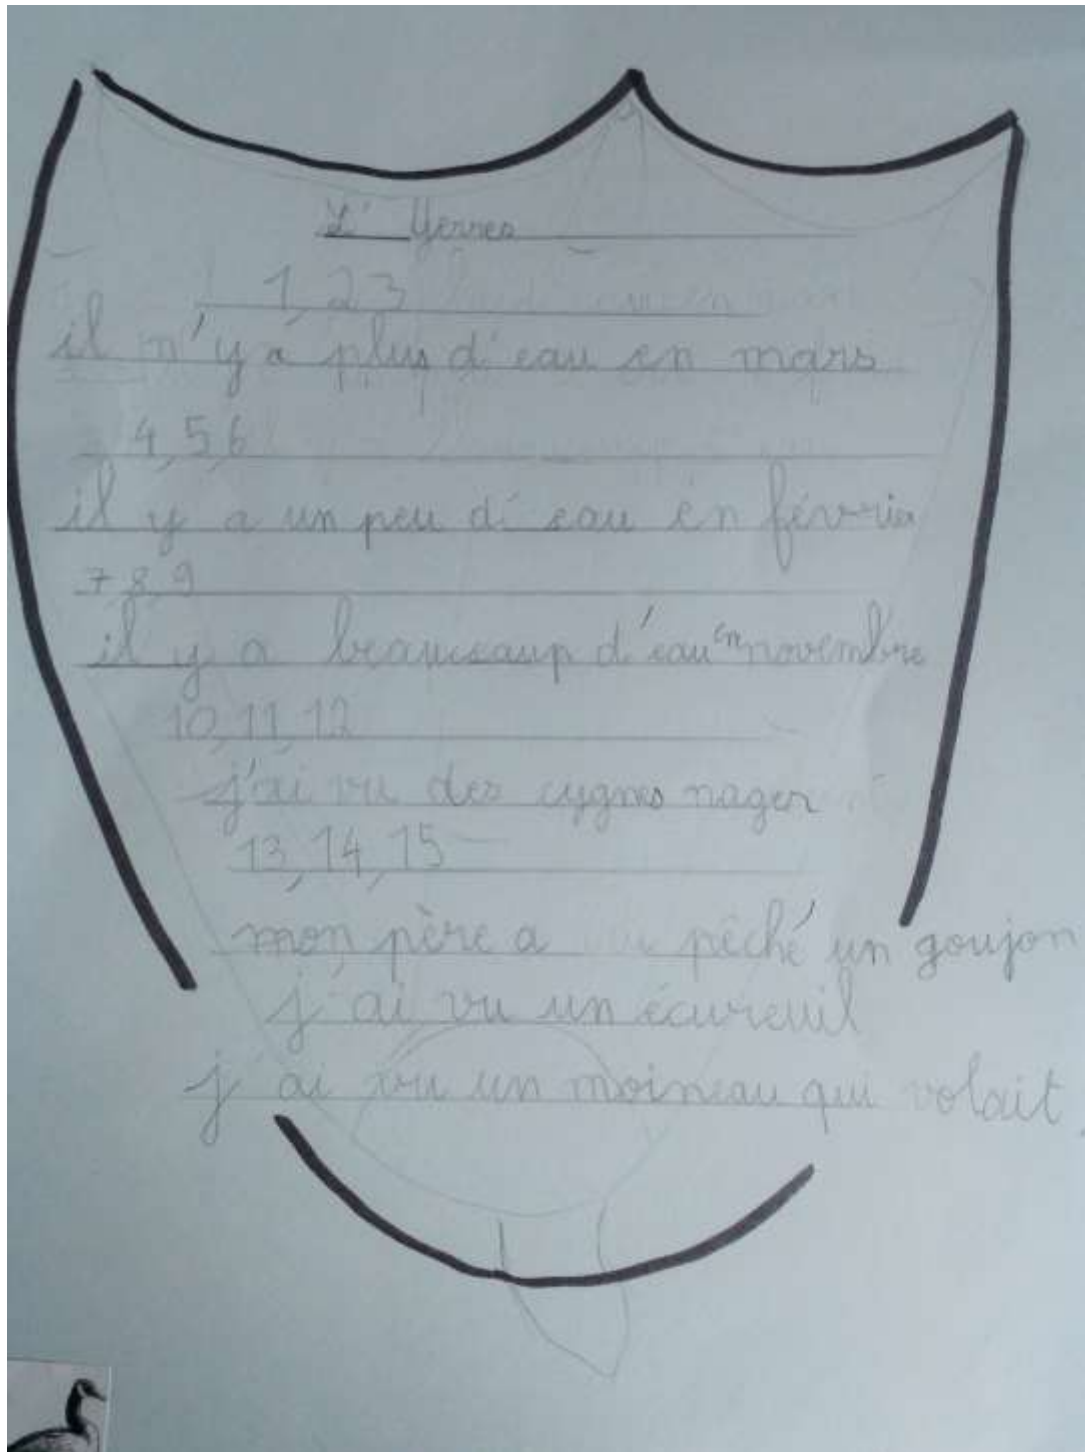 L' Yerres
1, 2 3
il n'y a plus d'eau en mars
4, 5, 6
il y a un peu d'eau en février
7, 8, 9
il y a beaucoup d'eau en novembre
10, 11, 12
j'ai vu des cygnes nager
13, 14, 15
mon père a pêché un goujon
j'ai vu un écureuil
j'ai vu un moineau qui volait.